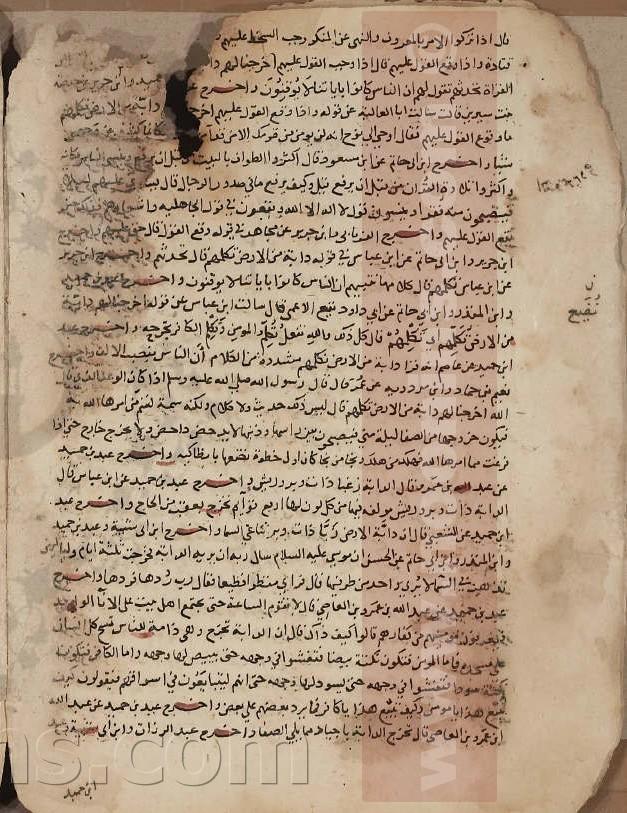 قال اذا تركوا الامر بالمعروف والنهي عن المنكر وجب السخط عليهم
قتادة واذا وقع القول عليهم قال اذا وجب القول عليهم اخرجنا لهم دا
القراة تحدثهم تقول لهم ان الناس كانوا باياتنا لا يوقنون واخرج عبد بن حميد وابن جرير
بنت سيرين قالت سالت ابا العالية عن قوله واذا وقع القول عليهم اخرجنا لهم دابة من الارض تكلمهم
ما وقوع القول عليهم فقال اوحي الى نوح انه لن يومن من قومك الا من قد امن
شيا واخرج ابن ابي حاتم عن ابن مسعود قال اكثروا الطواف بالبيت من قبل ان يرفع وينسى الناس مكانه
واكثروا تلاوة القران من قبل ان يرفع قيل وكيف يرفع ما في صدور الرجال قال
فيصبحون منه فقراء وينسون قول لا اله الا الله ويقعون في قول الجاهلية
يقع القول عليهم واخرج الفريابي وابن جرير عن مجاهد في قوله وقع القول قال حق عليهم واخرج
ابن جرير وابن ابي حاتم عن ابن عباس في قوله دابة من الارض تكلمهم قال تحدثهم واخرج ابن جرير
عن ابن عباس تكلمهم قال كلامها تنبيهم ان الناس كانوا باياتنا لا يوقنون واخرج عبد بن حميد
وابن المنذر وابن ابي حاتم عن ابي داود نفيع الاعمى قال سالت ابن عباس عن قوله اخرجنا لهم دابة
من الارض تكلمهم او تكلمهم قال كل ذلك والله تفعل تكلم المومن وتكلم الكافر تجرحه واخرج عبد
ابن حميد عن عاصم انه قرا دابة من الارض تكلمهم مشددة من الكلام ان الناس بنصب الالف واخرج
نعيم بن حماد وابن مردويه عن عمر قال قال رسول الله صلى الله عليه وسلم اذا كان الوعد الذي قال
الله اخرجنا لهم دابة من الارض تكلمهم قال ليس ذلك حديث ولا كلام ولكنه سمة تسم من امرها الله به
فيكون خروجها من الصفا ليلة منى فيصبحون بين راسها وذنبها لا يدحض داحض ولا يخرج خارج حتى اذا
فرغت مما امرها الله فهلك من هلك ونجا من نجا كان اول خطوة تضعها بانطاكية واخرج عبد بن حميد
عن عبد الله بن عمرو قال الدابة زغبا ذات وبر وريش واخرج عبد بن حميد عن ابن عباس قال
الدابة ذات وبر وريش مولفة فيها من كل لون لها اربع قوائم تخرج بعقب من الحاج واخرج عبد
ابن حميد عن الشعبي قال ان دابة الارض ذات وبر تناغي السما واخرج ابن ابي شيبة وعبد بن حميد
وابن المنذر وابن ابي حاتم عن الحسن ان موسى عليه السلام سال ربه ان يريه الدابة فخرجت ثلثة ايام ولياليهن
تذهب في السما لا يرى واحد من طرفيها قال فراى منظرا فظيعا فقال رب ردها فردها واخرج
عبد بن حميد عن عبد الله بن عمرو بن العاصي قال لا تقوم الساعة حتى يجتمع اهل بيت على الاناء الواحد
فيعرفون مومنيهم من كفارهم قالوا كيف ذاك قال ان الدابة تخرج وهي دامة للناس تمسح كل انسان
على مسجده فاما المومن فتكون نكتة بيضا فتفشوا في وجهه حتى يبيض لها وجهه واما الكافر فتكون
نكتة سودا فتفشوا في وجهه حتى يسود لها وجهه حتى انهم ليتبايعون في اسواقهم فيقولون كيف
تبيع هذا يا مومن وكيف تبيع هذا يا كافر فما يرد بعضهم على بعض واخرج عبد بن حميد عن عبد الله
ابن عمرو بن العاصي قال تخرج الدابة باجياد مما يلي الصفا واخرج عبد الرزاق وابن ابي شيبة وعبد
ابن حميد
نفيع
ns.com